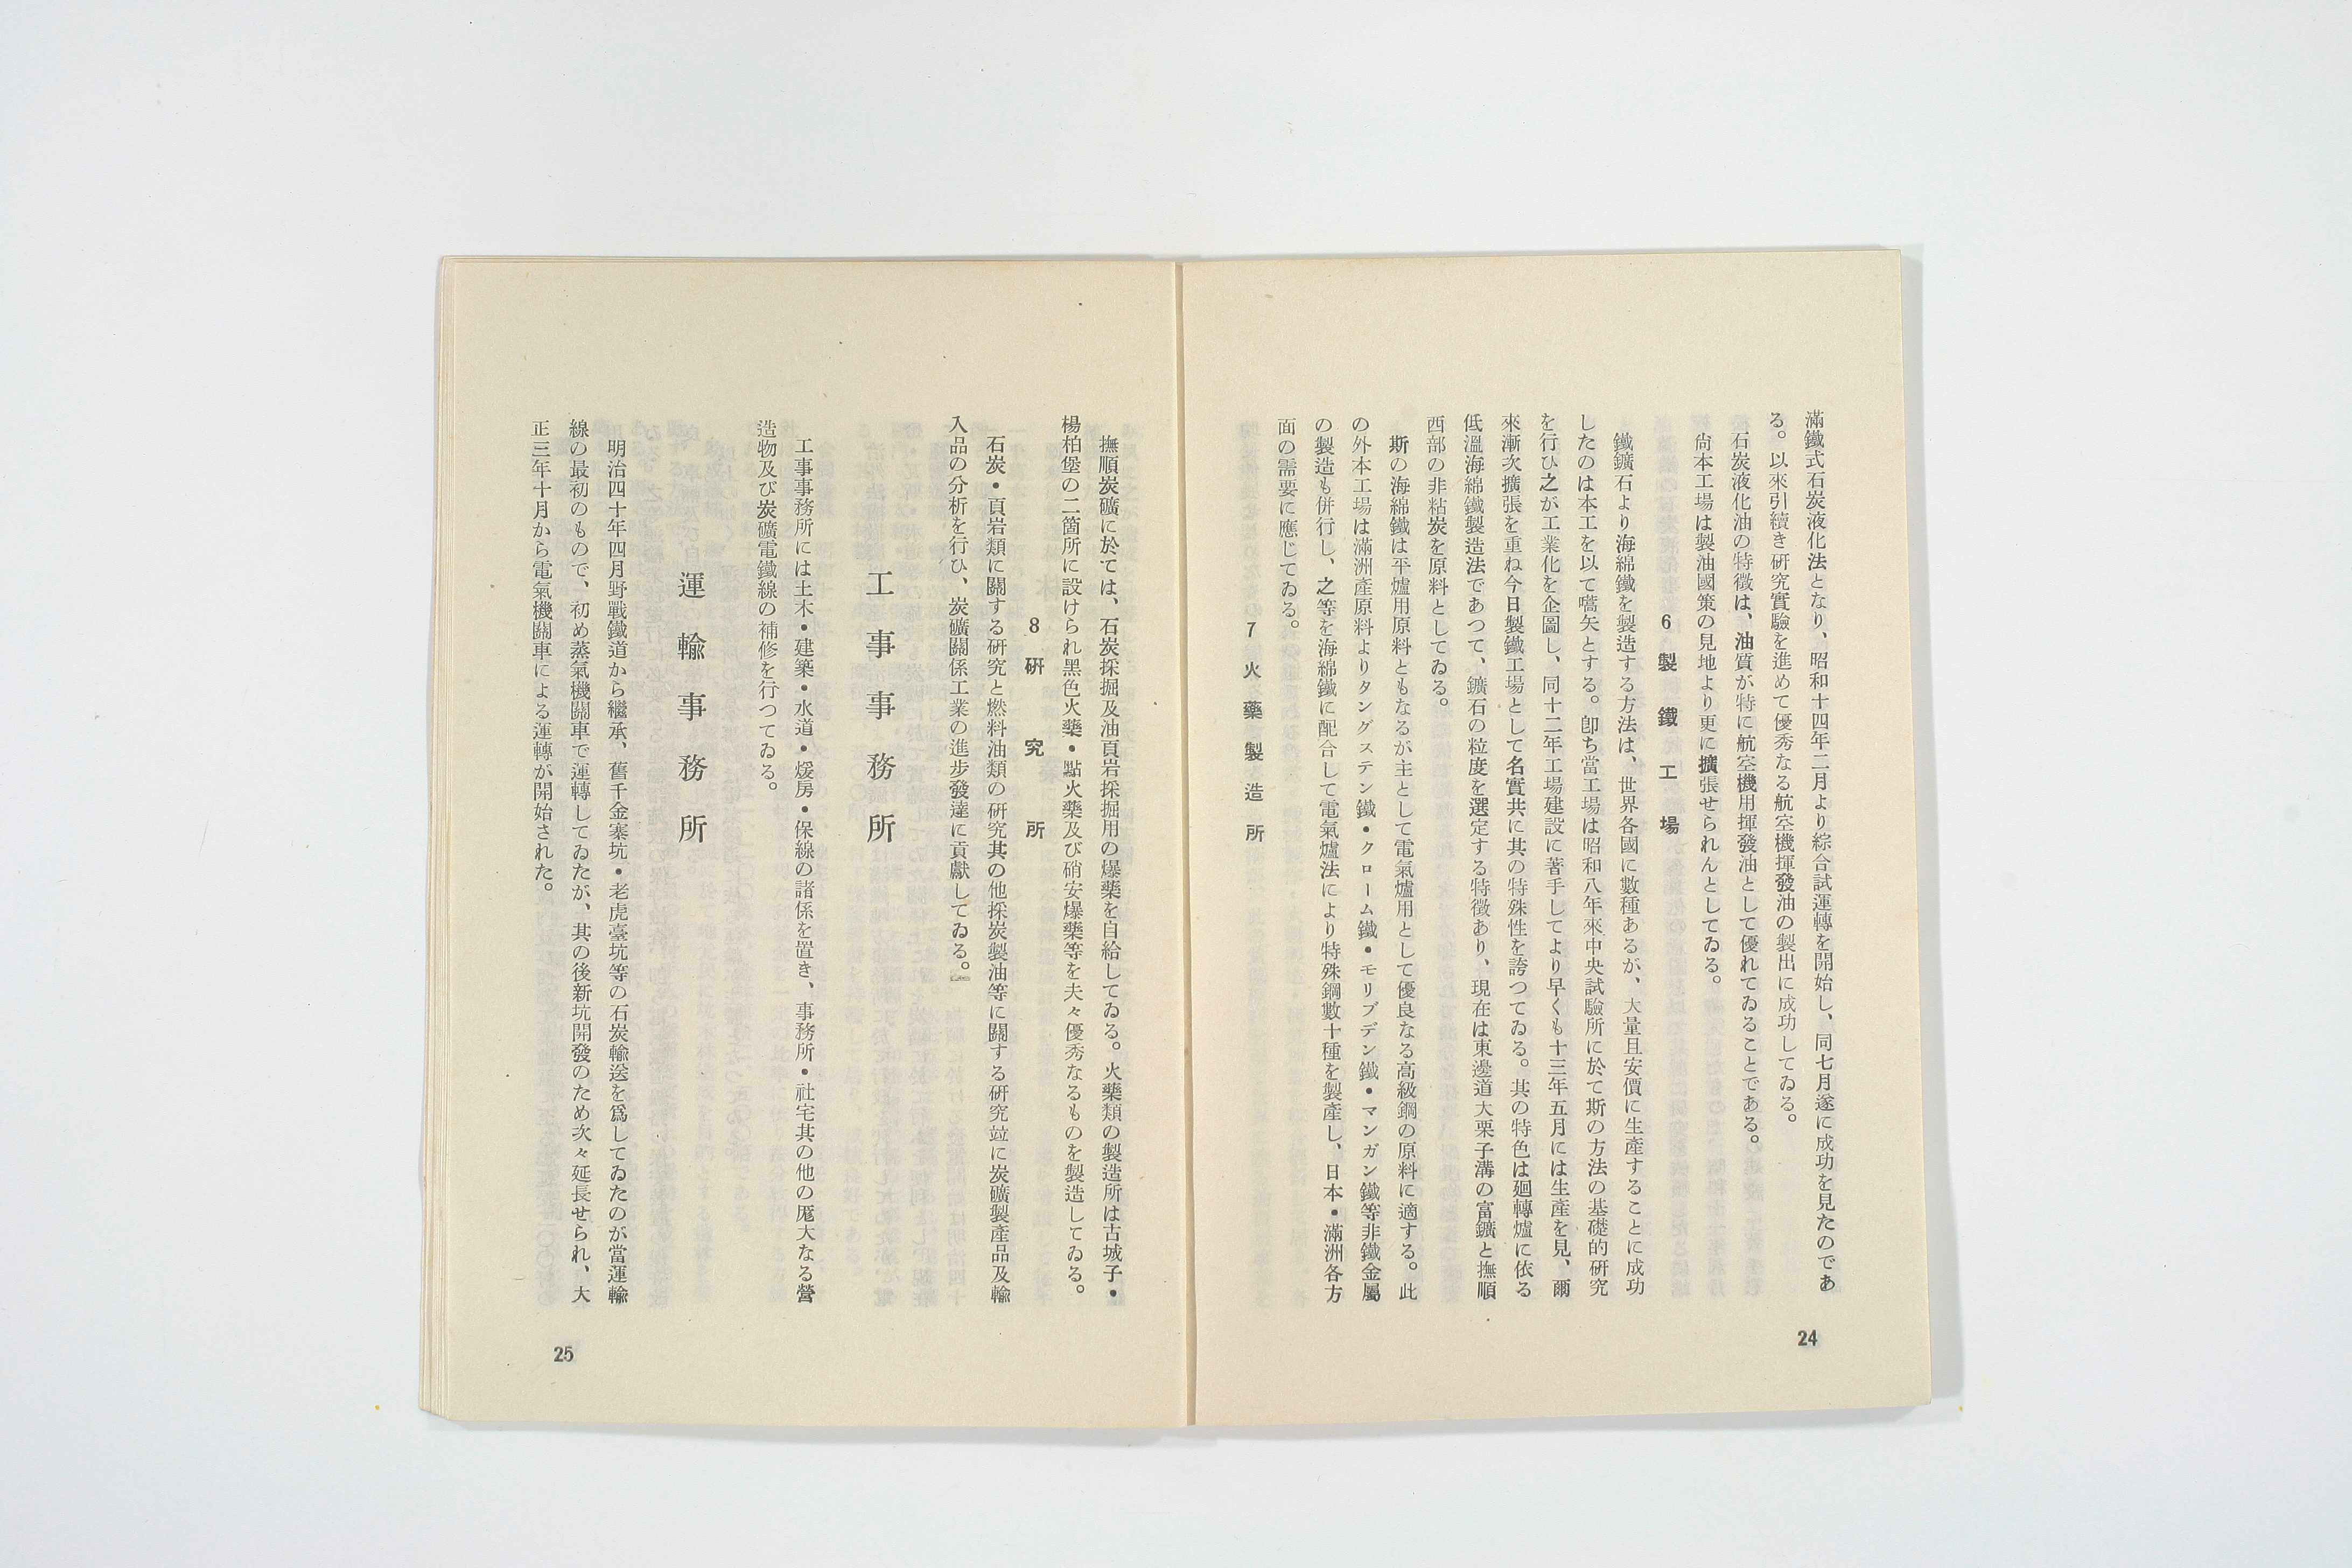 滿鐵式石炭液化法となり、昭和十四年二月より綜合試運轉を開始し、同七月遂に成功を見たのであ
る。以來引續き研究實驗を進めて優秀なる航空機揮發油の製出に成功してゐる。
石炭液化油の特徵は、油質が特に航空機用揮發油として優れてゐることである。
尙本工場は製油國策の見地より更に擴張せられんとしてゐる。
6 製鐵工場
鐵鑛石より海綿鐵を製造する方法は、世界各國に數種あるが、大量且安價に生產することに成功
したのは本工を以て嚆矢とする。卽ち當工場は昭和八年來中央試驗所に於て斯の方法の基礎的研究
を行ひ之が工業化を企圖し、同十二年工場建設に著手してより早くも十三年五月には生產を見、爾
來漸次擴張を重ね今日製鐵工場として名實共に其の特殊性を誇つてゐる。其の特色は廻轉爐に依る
低溫海綿鐵製造法であつて、鑛石の粒度を選定する特徵あり、現在は東邊道大栗子溝の富鑛と撫順
西部の非粘炭を原料としてゐる。
斯の海綿鐵は平爐用原料ともなるが主として電氣爐用として優良なる高級鋼の原料に適する。此
の外本工場は滿洲產原料よりタングステン鐵・クローム鐵・モリブデン鐵・マンガン鐵等非鐵金屬
の製造も併行し、之等を海綿鐵に配合して電氣爐法により特殊鋼數十種を製產し、日本・滿洲各方
面の需要に應じてゐる。
7 火藥製造所
24
撫順炭礦に於ては、石炭採掘及油頁岩採掘用の爆藥を自給してゐる。火藥類の製造所は古城子・
楊柏堡の二箇所に設けられ黑色火藥・點火藥及び硝安爆藥等を夫々優秀なるものを製造してゐる。
8 研究所
石炭・頁岩類に關する研究と燃料油類の研究其の他採炭製油等に關する研究竝に炭礦製產品及輸
入品の分析を行ひ、炭礦關係工業の進步發達に貢獻してゐる。
工事事務所
工事事務所には土木・建築・水道・煖房・保線の諸係を置き、事務所・社宅其の他の厖大なる營
造物及び炭礦電鐵線の補修を行つてゐる。
運輸事務所
明治四十年四月野戰鐵道から繼承、舊千金寨坑・老虎臺坑等の石炭輸送を爲してゐたのが當運輸
線の最初のもので、初め蒸氣機關車で運轉してゐたが、其の後新坑開發のため次々延長せられ、大
正三年十月から電氣機關車による運轉が開始された。
25